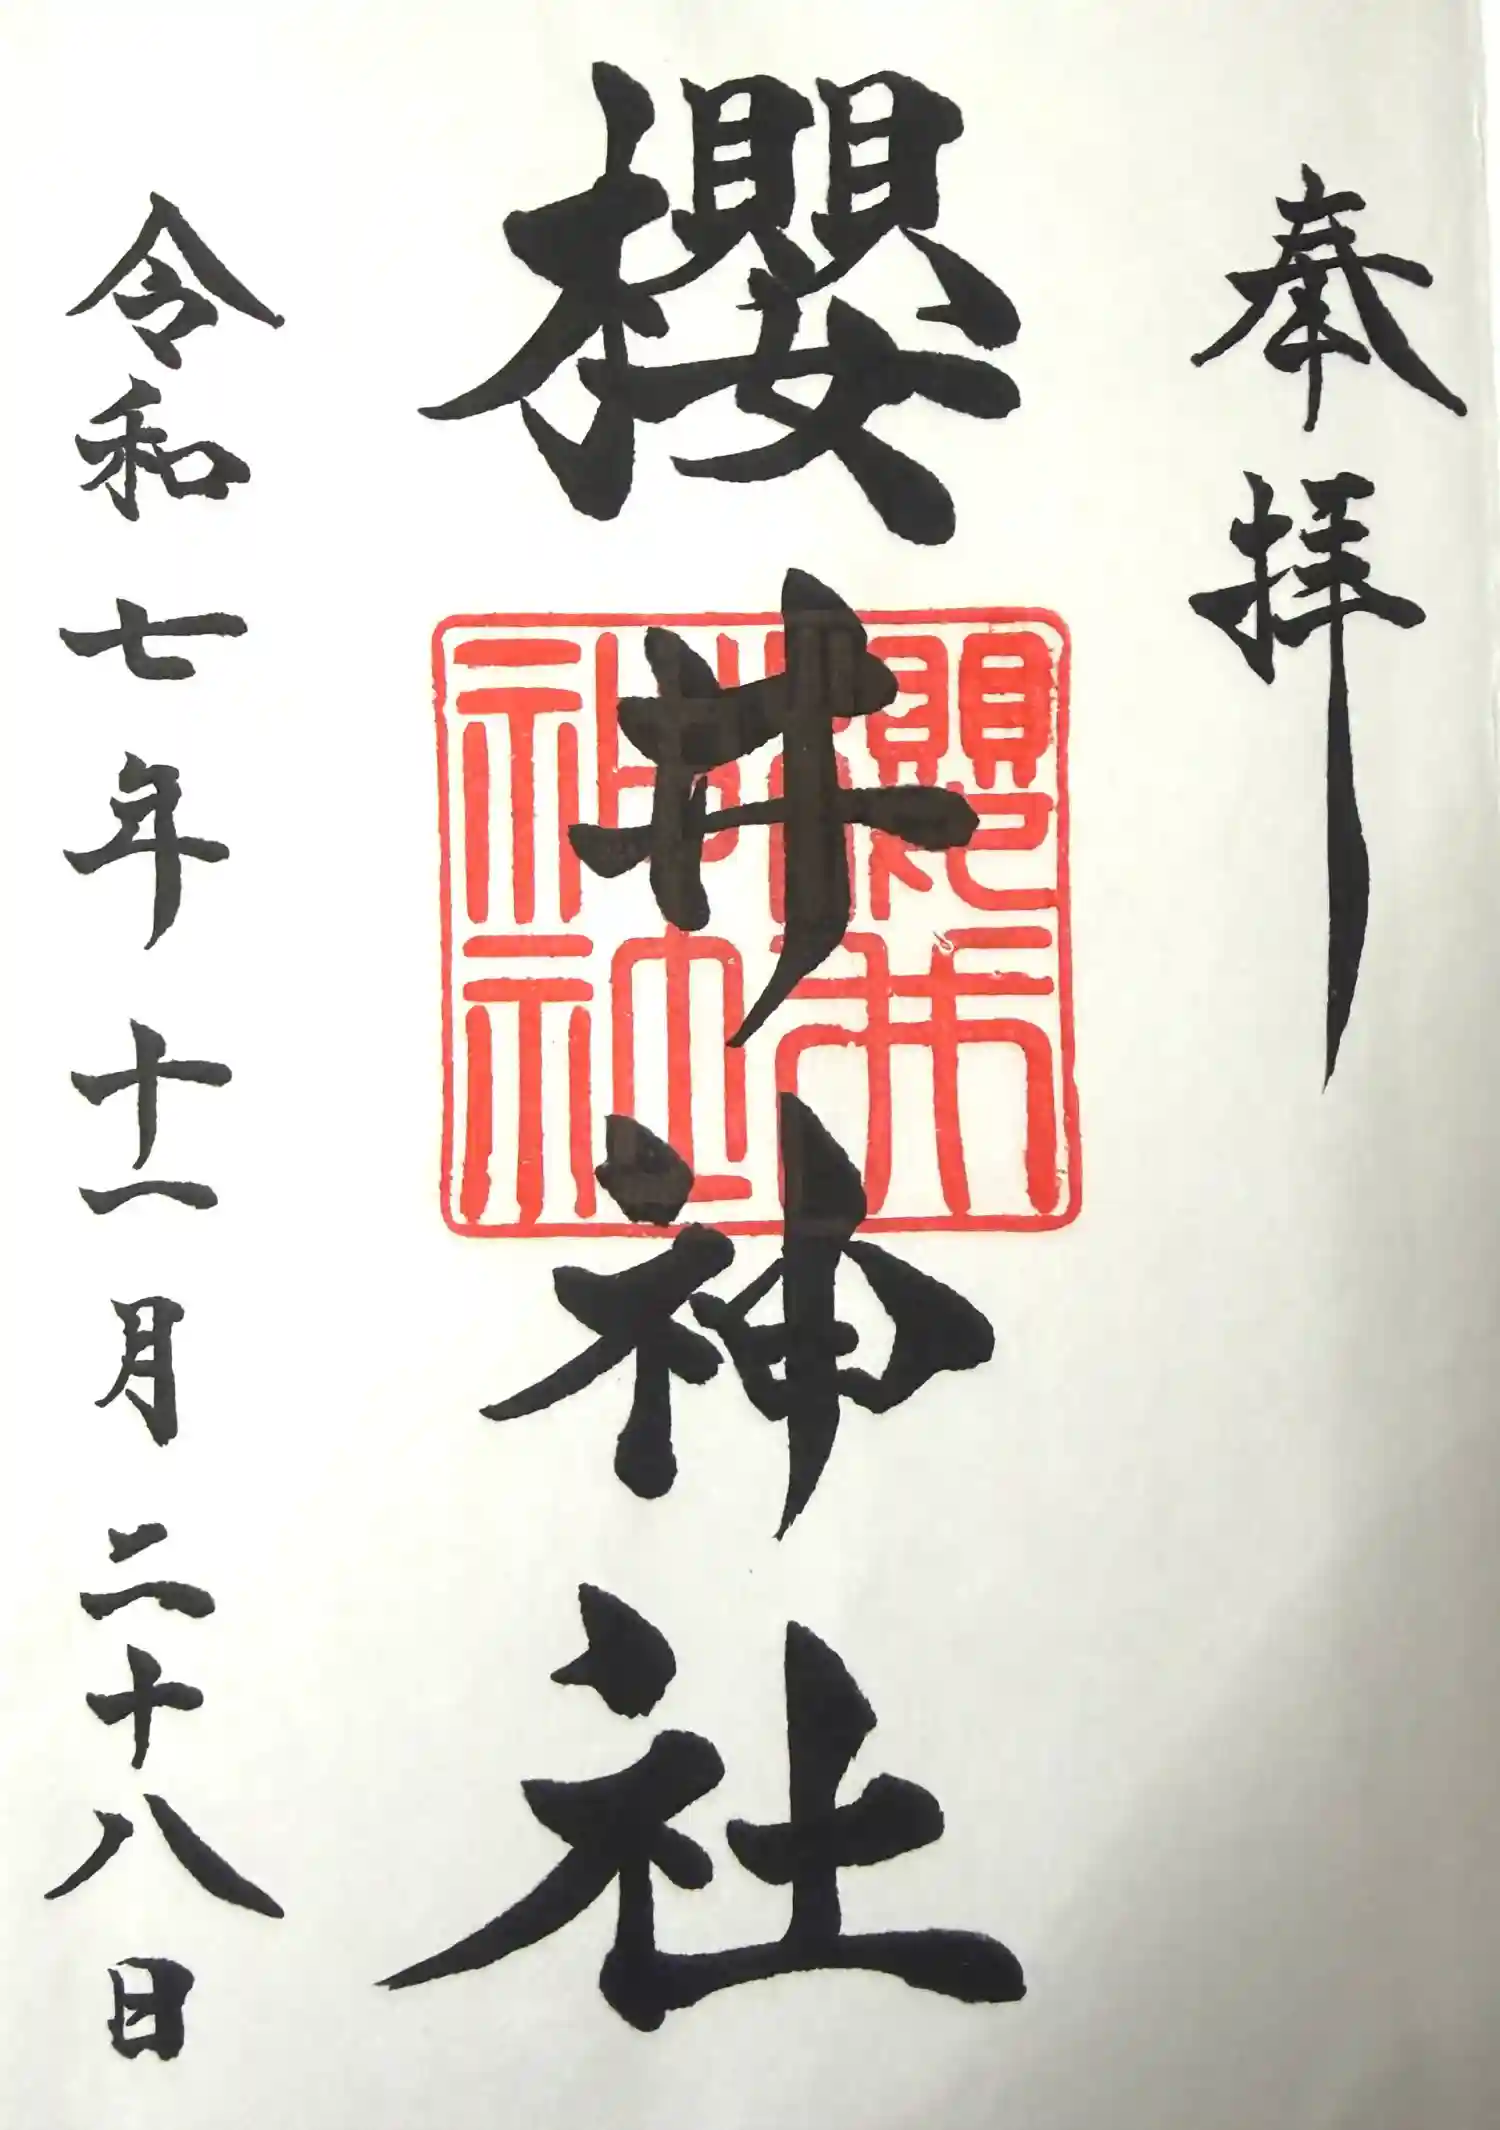 奉拝
櫻井神社
櫻井
神社
令和七年十一月二十八日